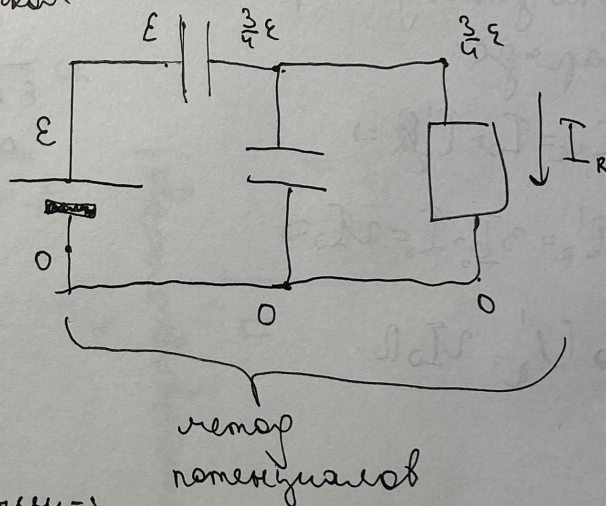 ε 3/4 ε 3/4 ε
ε
I_R
0
0 0
метод
потенциалов